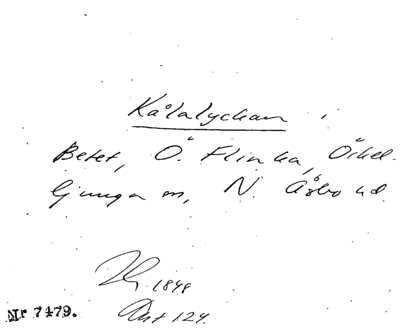 Kålalyckan
Betet, Ö. Flinka, Örkel-
ljunga sn, N. Åsbo hd.
1848
Akt 124.
Nr 7479.